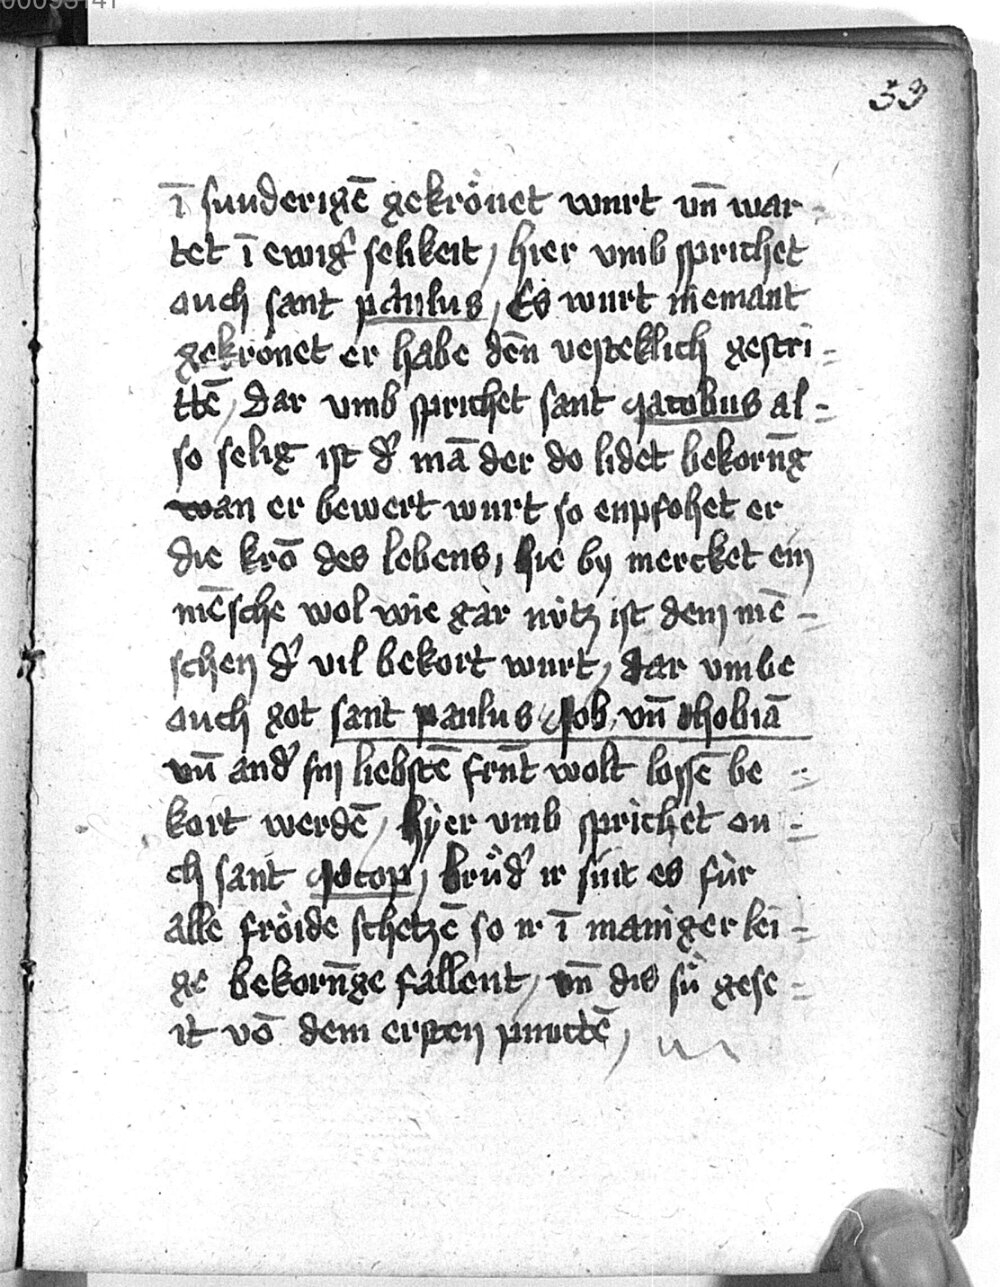 53
ī sunderigē gekrönet wurt vn̄ war-
tet ī ewigʼ selikeit / hier vmb sprichet
auch sant paulus / Es wurt niemant
gekrönet er habe dēn vesteklich gestri=
ttē / Dar vmb sprichet sant Jacobus al=
so selig ist dʼ mā der do lidet bekorn̄g
wan er bewert wurt so enpfohet er
die krō des lebens / hie by mercket ein
mēsche wol wie gar nütz ist dem mē=
schen dʼ vil bekort wurt / dar vmbe
auch got sant paulus Job vn̄ thobiā
vn̄ andʼ sin liebstē frūt wolt lossē be=
kort werdē / hyer vmb sprichet ou=
ch sant Jocop / brüdʼ ir sint es für
alle fröide schetzē so ir ī maniger lei=
ge bekorn̄ge fallent / vn̄ dis sü gese=
it vō dem ersten punctē /